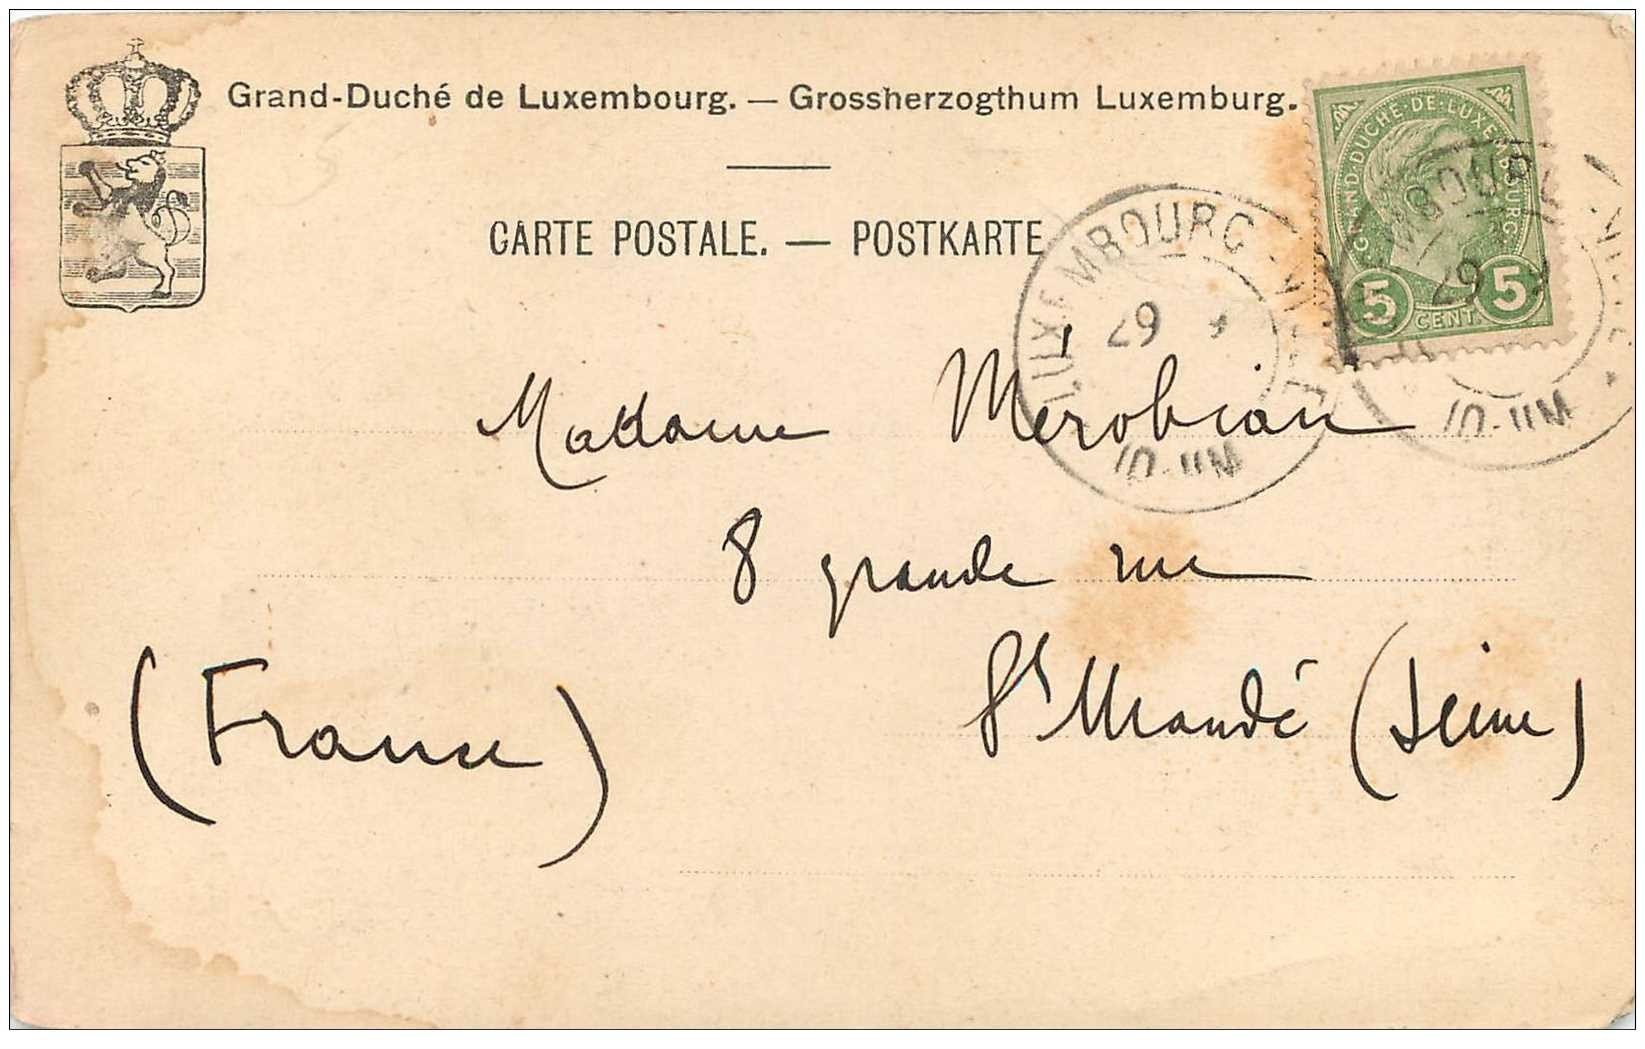 Grand-Duché de Luxembourg. — Grossherzogthum Luxemburg.
G. GRAND-DUCHÉ-DE-LUXEMBOURG.
5 CENT. 5
CARTE POSTALE. — POSTKARTE
LUXEMBOURG-VILLE
10-11M
Madame Mérobian
8 grande rue
St Mandé (Seine)
(France)